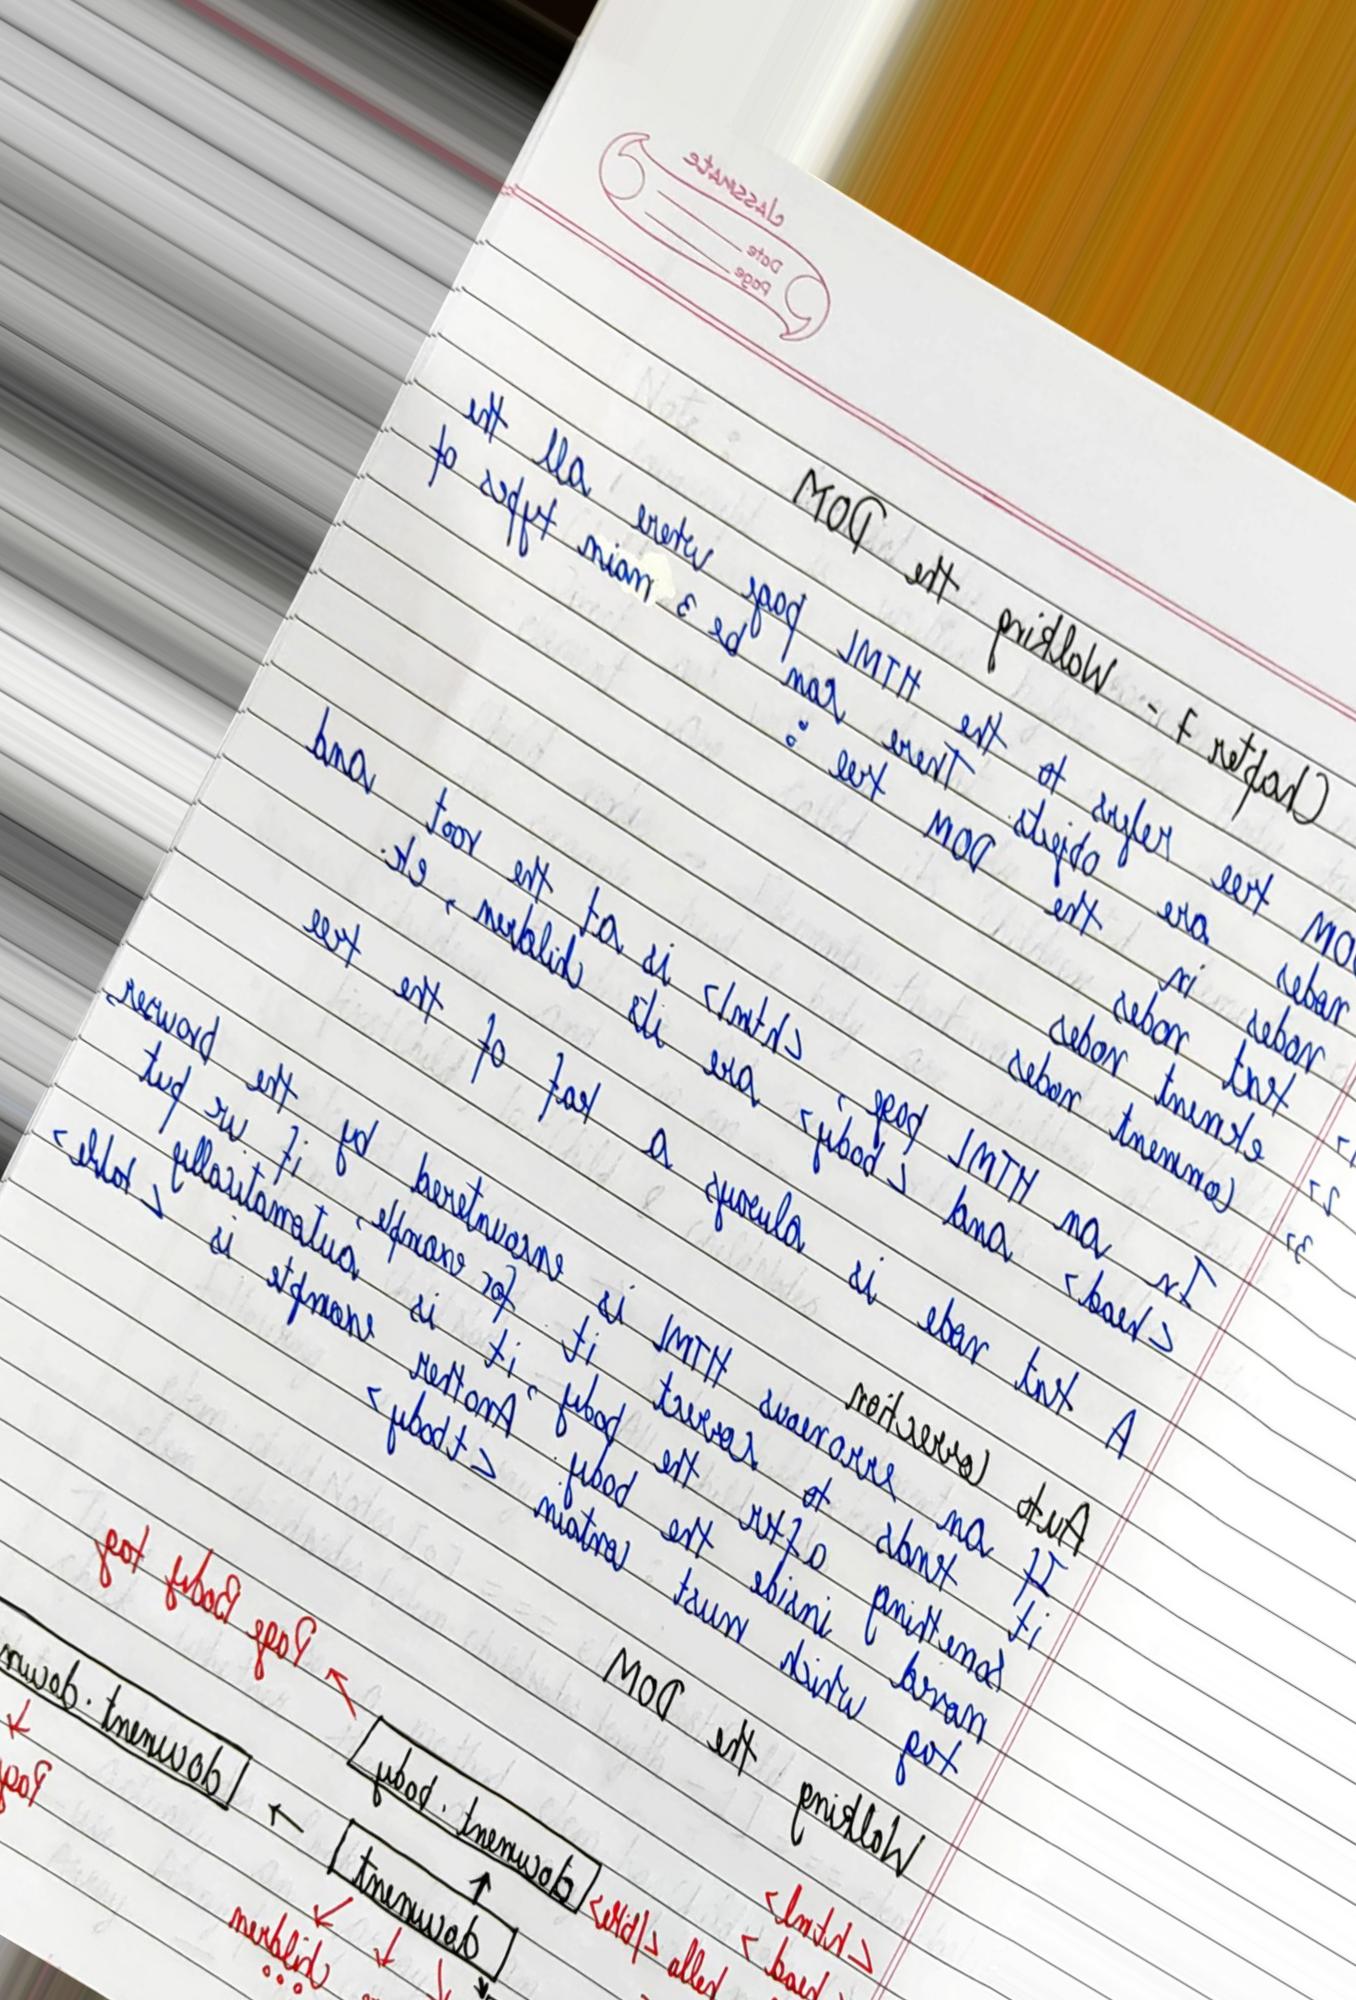 classmate
Date
Page
Chapter 7 - Walking the DOM
DOM tree refers to the HTML page where all the
nodes are objects. There can be 3 main types of
nodes in the DOM tree :
1> text nodes
2> element nodes
3> Comment nodes
In an HTML page, <html> is at the root and
<head> and <body> are its children, etc.
A text node is always a leaf of the tree
Auto correction
If an erroneous HTML is encountered by the browser
it tends to correct it. for example, if we put
something after the body, it is automatically
moved inside the body. Another example is <table>
tag which must contain <tbody>
Walking the DOM
Page Body tag
document.body
document
children
<html>
<head>
hello </title>